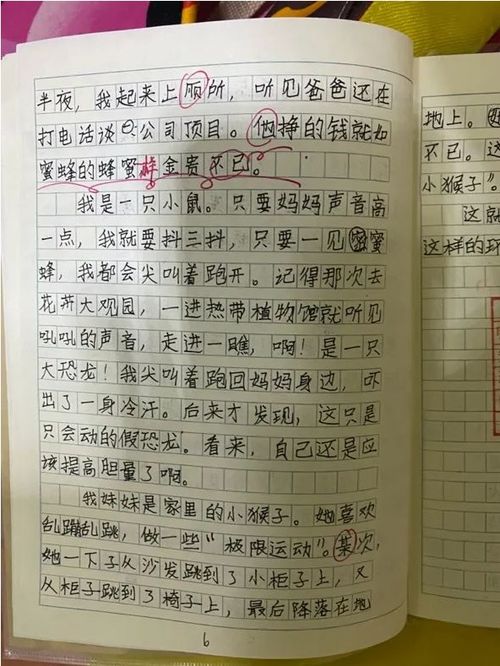 半夜，我起来上厕所，听见爸爸还在
打电话谈公司项目。他挣的钱就如
蜜蜂的蜂蜜样金贵不已。
我是一只小鼠。只要妈妈声音高
一点，我就要抖三抖，只要一见蜜
蜂，我都会尖叫着跑开。记得那次去
花卉大观园，一进热带植物馆就听见
吼吼的声音，走进一瞧，啊！是一只
大恐龙！我尖叫着跑回妈妈身边，吓
出了一身冷汗。后来才发现，这只是
只会动的假恐龙。看来，自己还是应
该提高胆量了啊。
我妹妹是家里的小猴子。她喜欢
乱蹦乱跳，做一些“极限运动”。某次，
她一下子从沙发跳到了小柜子上，又
从柜子跳到了椅子上，最后降落在地
6
地上。
不已。这
小猴子”。
这就
这样的环